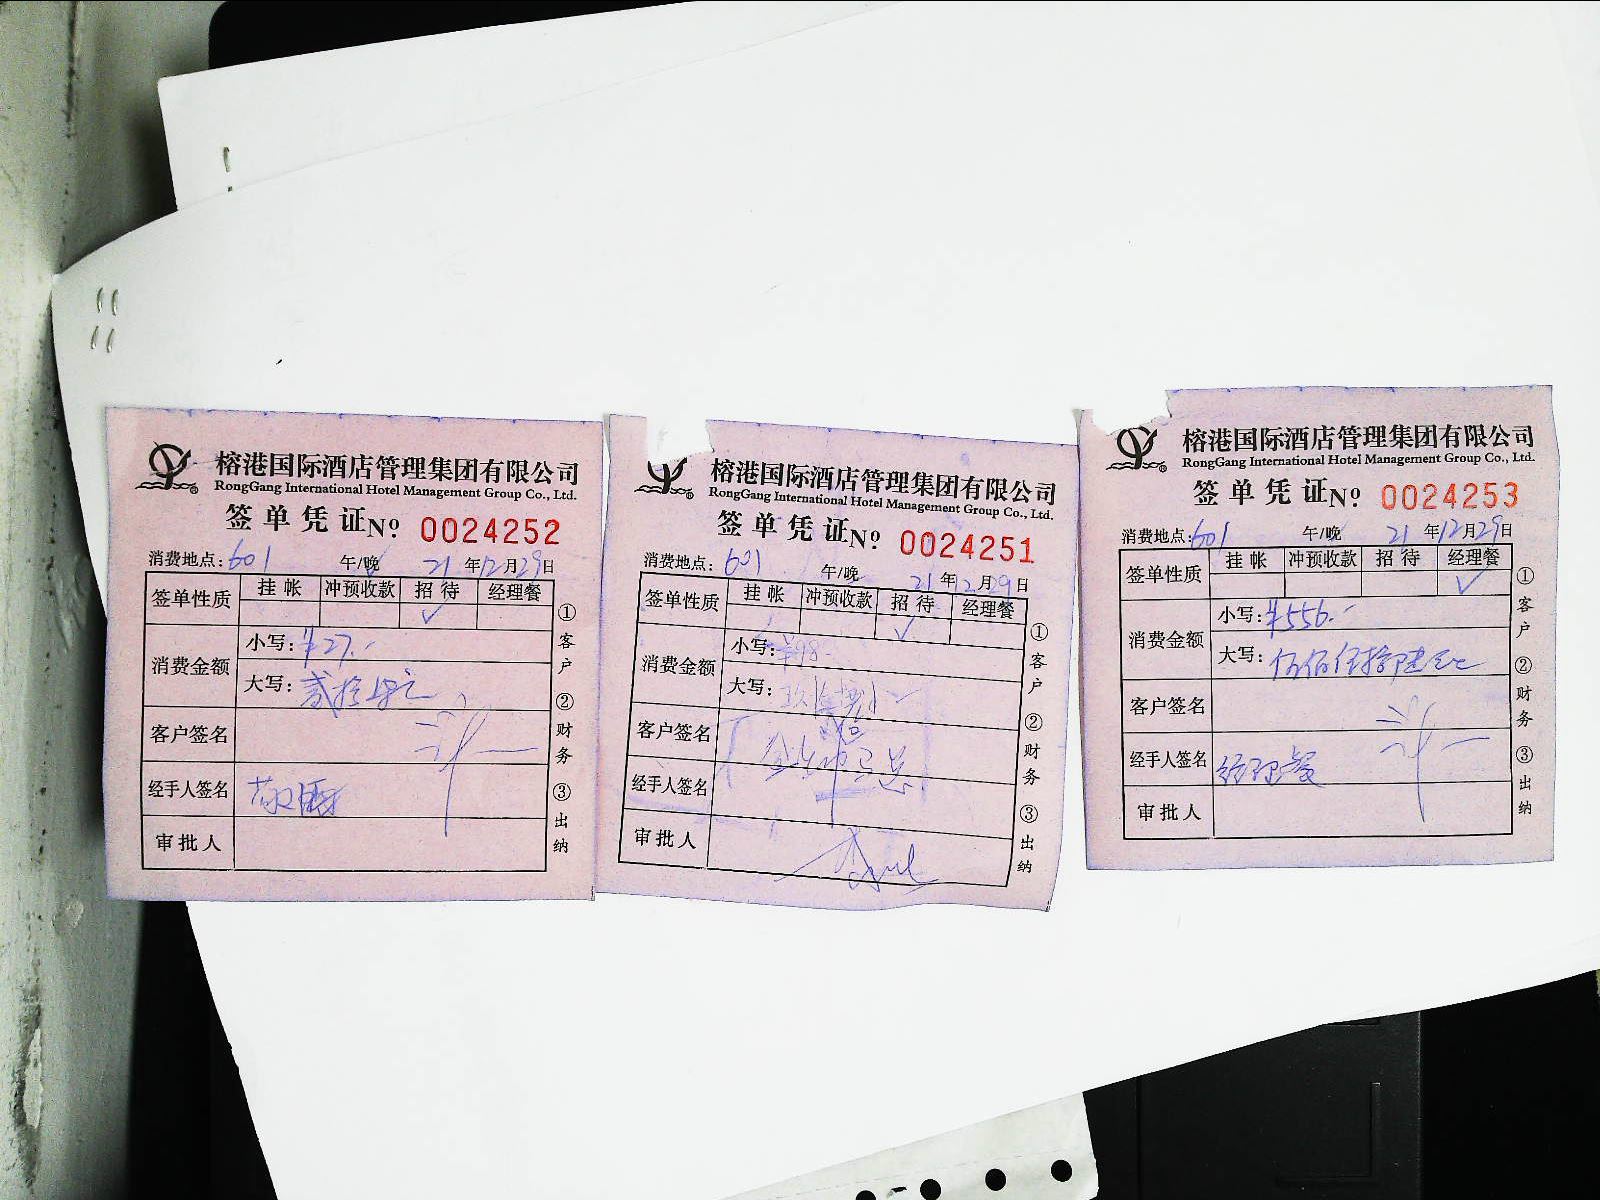 榕港国际酒店管理集团有限公司
RongGang International Hotel Management Group Co., Ltd.
签单凭证 No. 0024252
消费地点: 601 午/晚 21 年 12 月 29 日
签单性质 挂帐 冲预收款 招待 经理餐
✓
消费金额 小写: ¥27.-
大写: 贰拾柒元
客户签名
经手人签名
审批人
①客户 ②财务 ③出纳
榕港国际酒店管理集团有限公司
RongGang International Hotel Management Group Co., Ltd.
签单凭证 No. 0024251
消费地点: 601 午/晚 21 年 12 月 29 日
签单性质 挂帐 冲预收款 招待 经理餐
✓
消费金额 小写: ¥98.-
大写: 玖拾捌
客户签名
经手人签名
审批人
①客户 ②财务 ③出纳
榕港国际酒店管理集团有限公司
RongGang International Hotel Management Group Co., Ltd.
签单凭证 No. 0024253
消费地点: 601 午/晚 21 年 12 月 29 日
签单性质 挂帐 冲预收款 招待 经理餐
✓
消费金额 小写: ¥556.-
大写: 伍佰伍拾陆元
客户签名
经手人签名 经理餐
审批人
①客户 ②财务 ③出纳